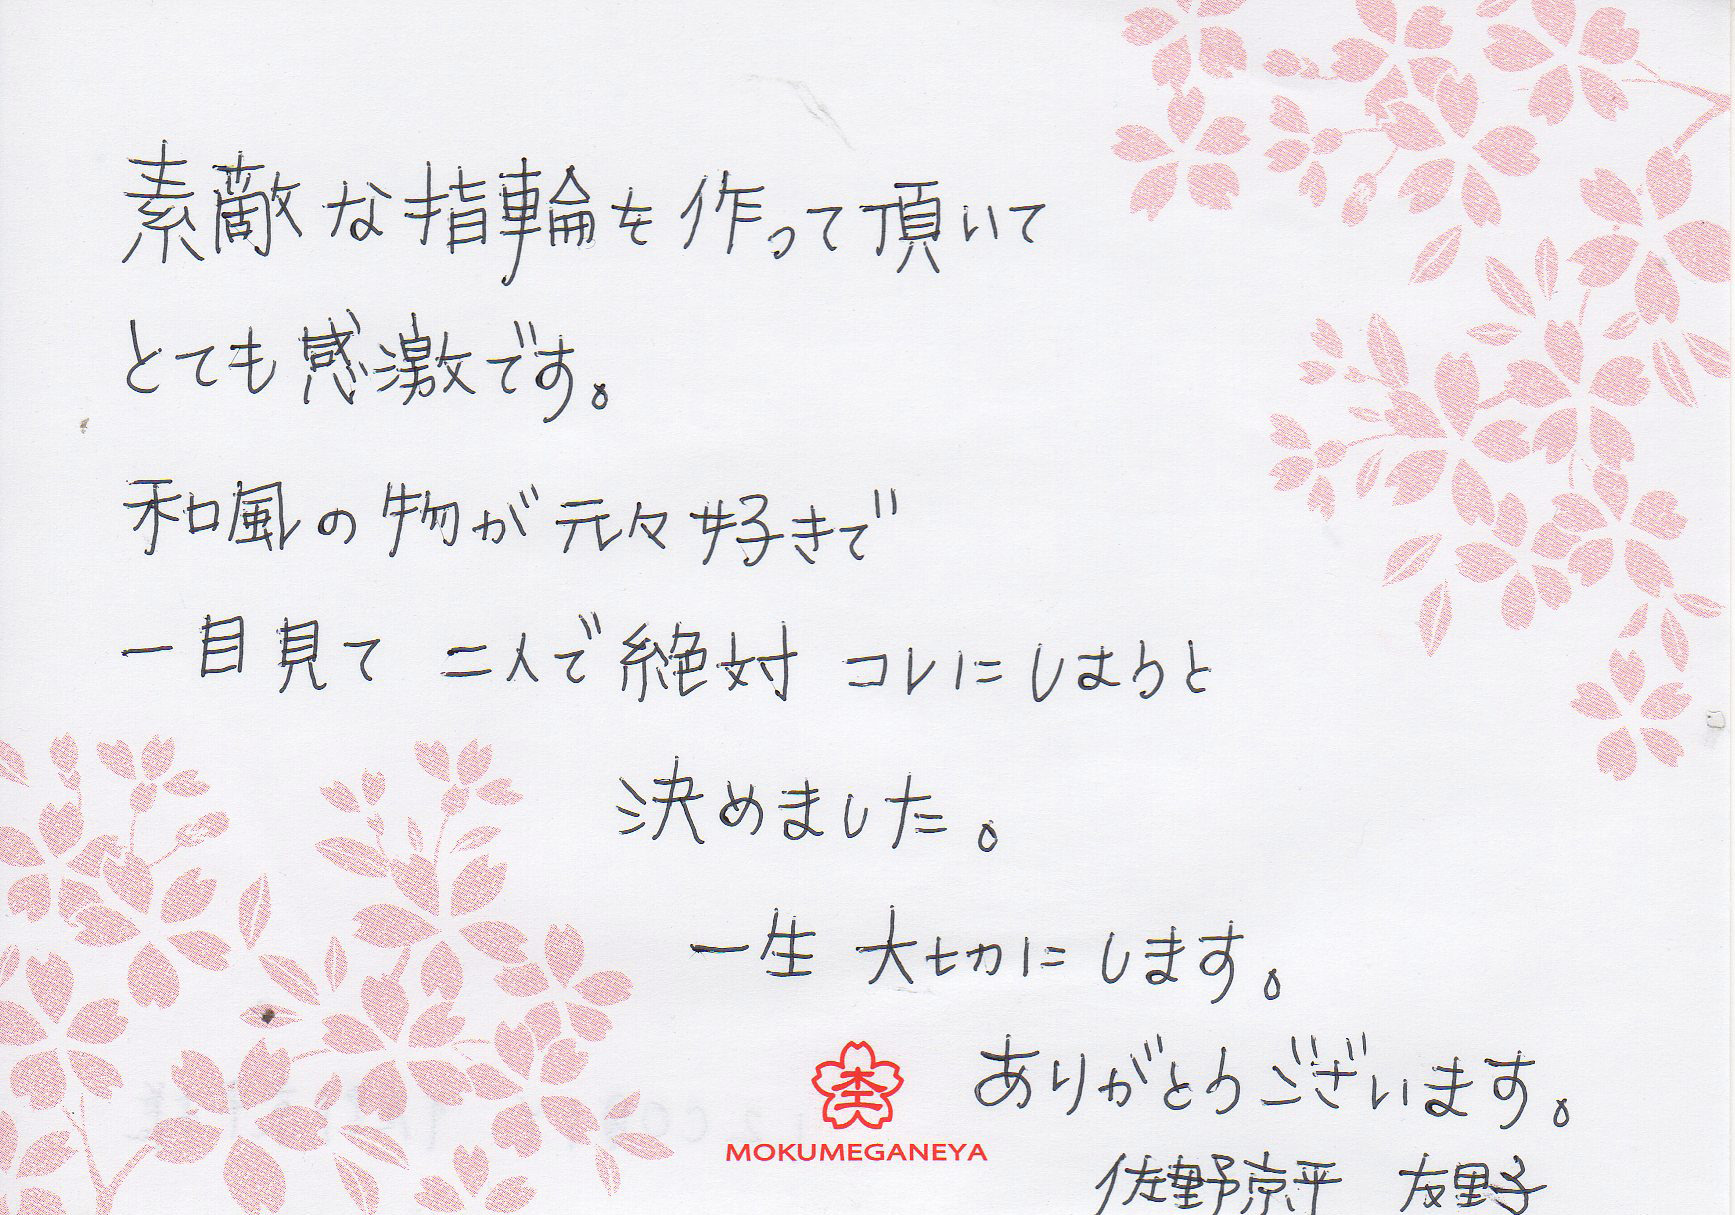 素敵な指輪を作って頂いて
とても感激です。
和風の物が元々好きで
一目見て 二人で絶対 コレにしようと
決めました。
一生 大切にします。
ありがとうございます。
MOKUMEGANEYA
佐野京平 友里子